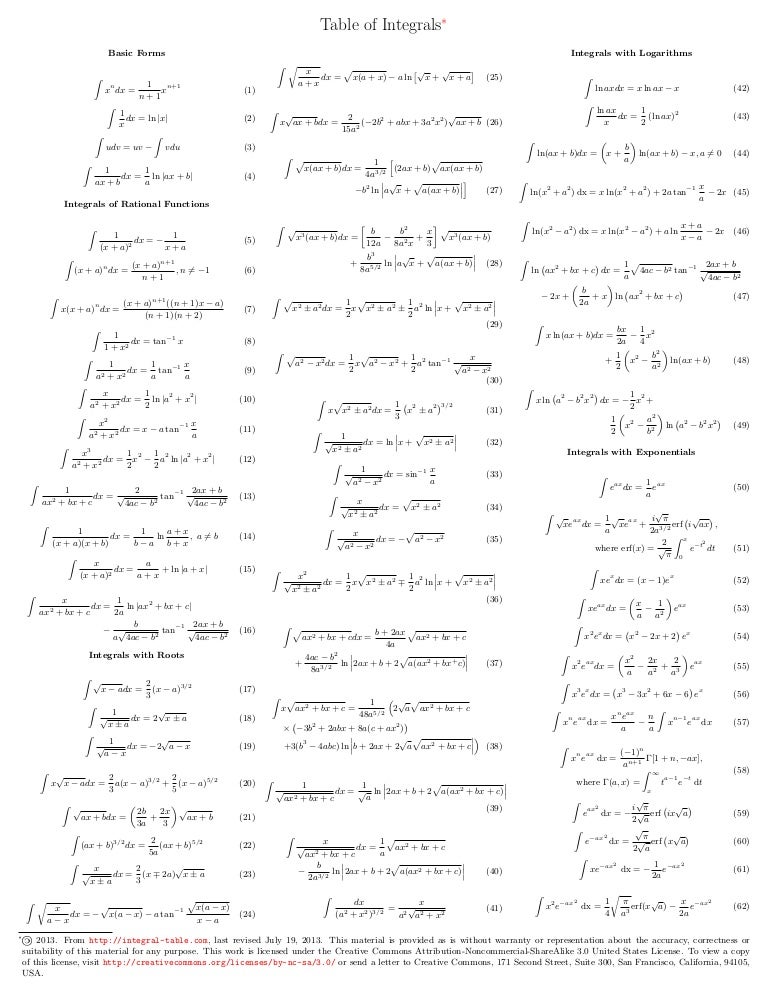 Table of Integrals*
Basic Forms
∫ xⁿdx = 1/(n+1) xⁿ⁺¹ (1)
∫ 1/x dx = ln |x| (2)
∫ udv = uv − ∫ vdu (3)
∫ 1/(ax + b) dx = 1/a ln |ax + b| (4)
Integrals of Rational Functions
∫ 1/(x + a)² dx = − 1/(x + a) (5)
∫ (x + a)ⁿdx = (x + a)ⁿ⁺¹/(n + 1), n ≠ −1 (6)
∫ x(x + a)ⁿdx = (x + a)ⁿ⁺¹((n + 1)x − a)/((n + 1)(n + 2)) (7)
∫ 1/(1 + x²) dx = tan⁻¹ x (8)
∫ 1/(a² + x²) dx = 1/a tan⁻¹ x/a (9)
∫ x/(a² + x²) dx = 1/2 ln |a² + x²| (10)
∫ x²/(a² + x²) dx = x − a tan⁻¹ x/a (11)
∫ x³/(a² + x²) dx = 1/2 x² − 1/2 a² ln |a² + x²| (12)
∫ 1/(ax² + bx + c) dx = 2/√(4ac − b²) tan⁻¹ (2ax + b)/√(4ac − b²) (13)
∫ 1/((x + a)(x + b)) dx = 1/(b − a) ln (a + x)/(b + x), a ≠ b (14)
∫ x/(x + a)² dx = a/(a + x) + ln |a + x| (15)
∫ x/(ax² + bx + c) dx = 1/2a ln |ax² + bx + c|
− b/(a√(4ac − b²)) tan⁻¹ (2ax + b)/√(4ac − b²) (16)
Integrals with Roots
∫ √(x − a) dx = 2/3 (x − a)^(3/2) (17)
∫ 1/√(x ± a) dx = 2√(x ± a) (18)
∫ 1/√(a − x) dx = −2√(a − x) (19)
∫ x√(x − a) dx = 2/3 a(x − a)^(3/2) + 2/5 (x − a)^(5/2) (20)
∫ √(ax + b) dx = (2b/3a + 2x/3) √(ax + b) (21)
∫ (ax + b)^(3/2) dx = 2/5a (ax + b)^(5/2) (22)
∫ x/√(x ± a) dx = 2/3 (x ∓ 2a)√(x ± a) (23)
∫ √(x/(a − x)) dx = −√(x(a − x)) − a tan⁻¹ √(x(a − x))/(x − a) (24)
∫ √(x/(a + x)) dx = √(x(a + x)) − a ln [√x + √(x + a)] (25)
∫ x√(ax + b) dx = 2/15a² (−2b² + abx + 3a²x²)√(ax + b) (26)
∫ √(x(ax + b)) dx = 1/4a^(3/2) [(2ax + b)√(ax(ax + b))
−b² ln |a√x + √(a(ax + b))|] (27)
∫ √(x³(ax + b)) dx = [b/12a − b²/8a²x + x/3] √(x³(ax + b))
+ b³/8a^(5/2) ln |a√x + √(a(ax + b))| (28)
∫ √(x² ± a²) dx = 1/2 x√(x² ± a²) ± 1/2 a² ln |x + √(x² ± a²)|
(29)
∫ √(a² − x²) dx = 1/2 x√(a² − x²) + 1/2 a² tan⁻¹ x/√(a² − x²)
(30)
∫ x√(x² ± a²) dx = 1/3 (x² ± a²)^(3/2) (31)
∫ 1/√(x² ± a²) dx = ln |x + √(x² ± a²)| (32)
∫ 1/√(a² − x²) dx = sin⁻¹ x/a (33)
∫ x/√(x² ± a²) dx = √(x² ± a²) (34)
∫ x/√(a² − x²) dx = −√(a² − x²) (35)
∫ x²/√(x² ± a²) dx = 1/2 x√(x² ± a²) ∓ 1/2 a² ln |x + √(x² ± a²)|
(36)
∫ √(ax² + bx + c) dx = (b + 2ax)/4a √(ax² + bx + c)
+ (4ac − b²)/8a^(3/2) ln |2ax + b + 2√(a(ax² + bx⁺c))| (37)
∫ x√(ax² + bx + c) = 1/48a^(5/2) (2√a √(ax² + bx + c)
× (−3b² + 2abx + 8a(c + ax²))
+3(b³ − 4abc) ln |b + 2ax + 2√a √(ax² + bx + c)|) (38)
∫ 1/√(ax² + bx + c) dx = 1/√a ln |2ax + b + 2√(a(ax² + bx + c))|
(39)
∫ x/√(ax² + bx + c) dx = 1/a √(ax² + bx + c)
− b/2a^(3/2) ln |2ax + b + 2√(a(ax² + bx + c))| (40)
∫ dx/(a² + x²)^(3/2) = x/(a²√(a² + x²)) (41)
Integrals with Logarithms
∫ ln ax dx = x ln ax − x (42)
∫ ln ax/x dx = 1/2 (ln ax)² (43)
∫ ln(ax + b) dx = (x + b/a) ln(ax + b) − x, a ≠ 0 (44)
∫ ln(x² + a²) dx = x ln(x² + a²) + 2a tan⁻¹ x/a − 2x (45)
∫ ln(x² − a²) dx = x ln(x² − a²) + a ln (x + a)/(x − a) − 2x (46)
∫ ln (ax² + bx + c) dx = 1/a √(4ac − b²) tan⁻¹ (2ax + b)/√(4ac − b²)
− 2x + (b/2a + x) ln (ax² + bx + c) (47)
∫ x ln(ax + b) dx = bx/2a − 1/4 x²
+ 1/2 (x² − b²/a²) ln(ax + b) (48)
∫ x ln (a² − b²x²) dx = −1/2 x² +
1/2 (x² − a²/b²) ln (a² − b²x²) (49)
Integrals with Exponentials
∫ e^(ax) dx = 1/a e^(ax) (50)
∫ √x e^(ax) dx = 1/a √x e^(ax) + i√π/2a^(3/2) erf (i√(ax)),
where erf(x) = 2/√π ∫₀ˣ e^(−t²) dt (51)
∫ xeˣ dx = (x − 1)eˣ (52)
∫ xe^(ax) dx = (x/a − 1/a²) e^(ax) (53)
∫ x²eˣ dx = (x² − 2x + 2) eˣ (54)
∫ x²e^(ax) dx = (x²/a − 2x/a² + 2/a³) e^(ax) (55)
∫ x³eˣ dx = (x³ − 3x² + 6x − 6) eˣ (56)
∫ xⁿe^(ax) dx = xⁿe^(ax)/a − n/a ∫ xⁿ⁻¹e^(ax) dx (57)
∫ xⁿe^(ax) dx = (−1)ⁿ/aⁿ⁺¹ Γ[1 + n, −ax],
where Γ(a, x) = ∫ₓ^∞ t^(a−1)e^(−t) dt
(58)
∫ e^(ax²) dx = −i√π/2√a erf (ix√a) (59)
∫ e^(−ax²) dx = √π/2√a erf (x√a) (60)
∫ xe^(−ax²) dx = −1/2a e^(−ax²) (61)
∫ x²e^(−ax²) dx = 1/4 √(π/a³) erf(x√a) − x/2a e^(−ax²) (62)
*© 2013. From http://integral-table.com, last revised July 19, 2013. This material is provided as is without warranty or representation about the accuracy, correctness or
suitability of this material for any purpose. This work is licensed under the Creative Commons Attribution-Noncommercial-ShareAlike 3.0 United States License. To view a copy
of this license, visit http://creativecommons.org/licenses/by-nc-sa/3.0/ or send a letter to Creative Commons, 171 Second Street, Suite 300, San Francisco, California, 94105,
USA.